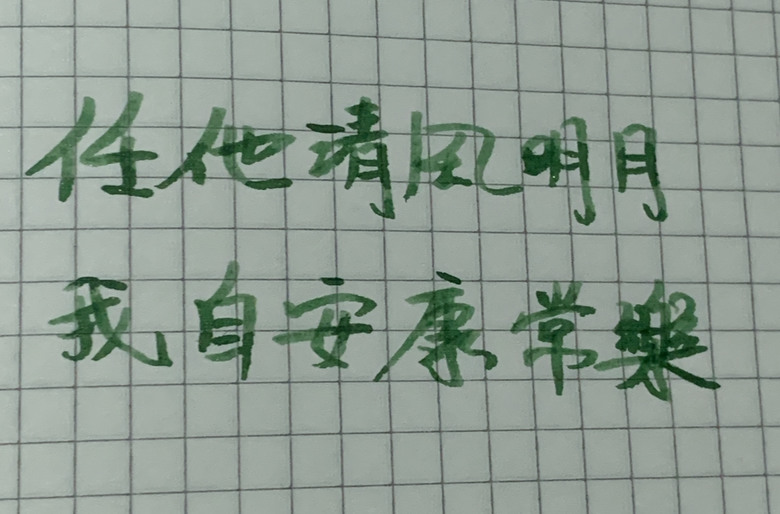 任他清风明月
我自安康常樂